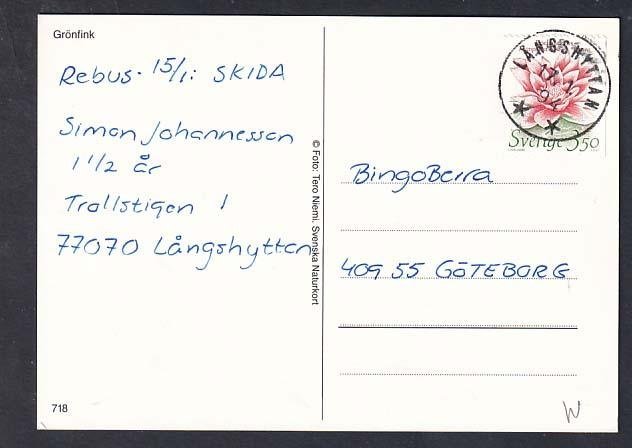 Grönfink
Rebus 15/1: SKIDA
Simon Johannesson
1 1/2 år
Trollstigen 1
77070 Långshyttan
718
© Foto: Tero Niemi. Svenska Naturkort
LÅNGSHYTTAN
17.1.
94
Sverige 3.50
BingoBerra
409 55 GÖTEBORG